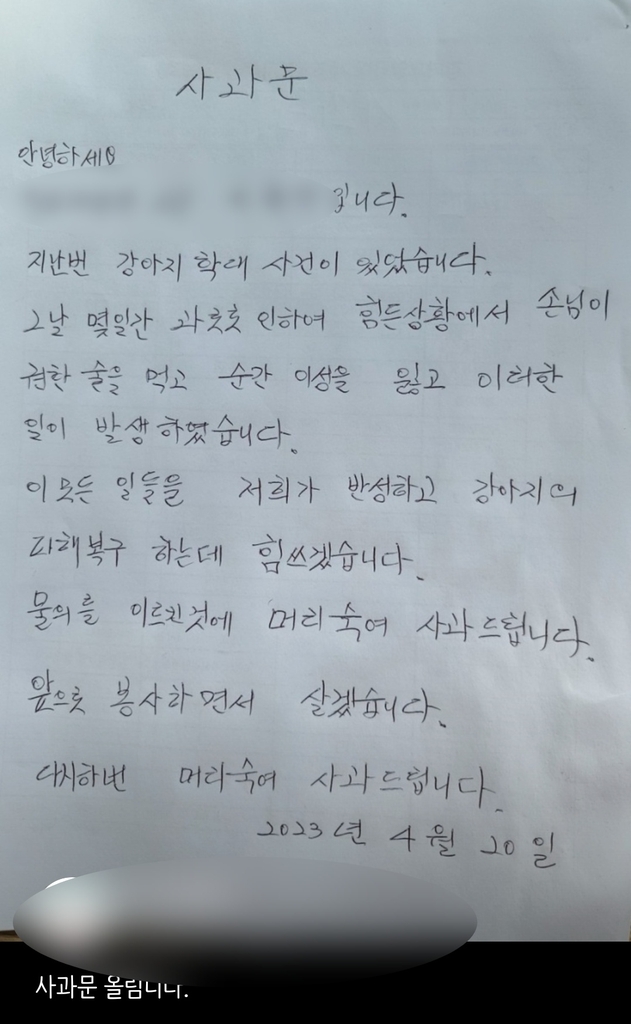 사과문
안녕하세요
입니다.
지난번 강아지 학대 사건이 있었습니다.
그날 몇일간 과로로 인하여 힘든상황에서 손님이
권한 술을 먹고 순간 이성을 잃고 이러한
일이 발생하였습니다.
이 모든 일들을 저희가 반성하고 강아지의
피해복구 하는데 힘쓰겠습니다.
물의를 이르킨것에 머리숙여 사과드립니다.
앞으로 봉사하면서 살겠습니다.
다시하번 머리숙여 사과드립니다.
2023년 4월 20일
사과문 올립니다.